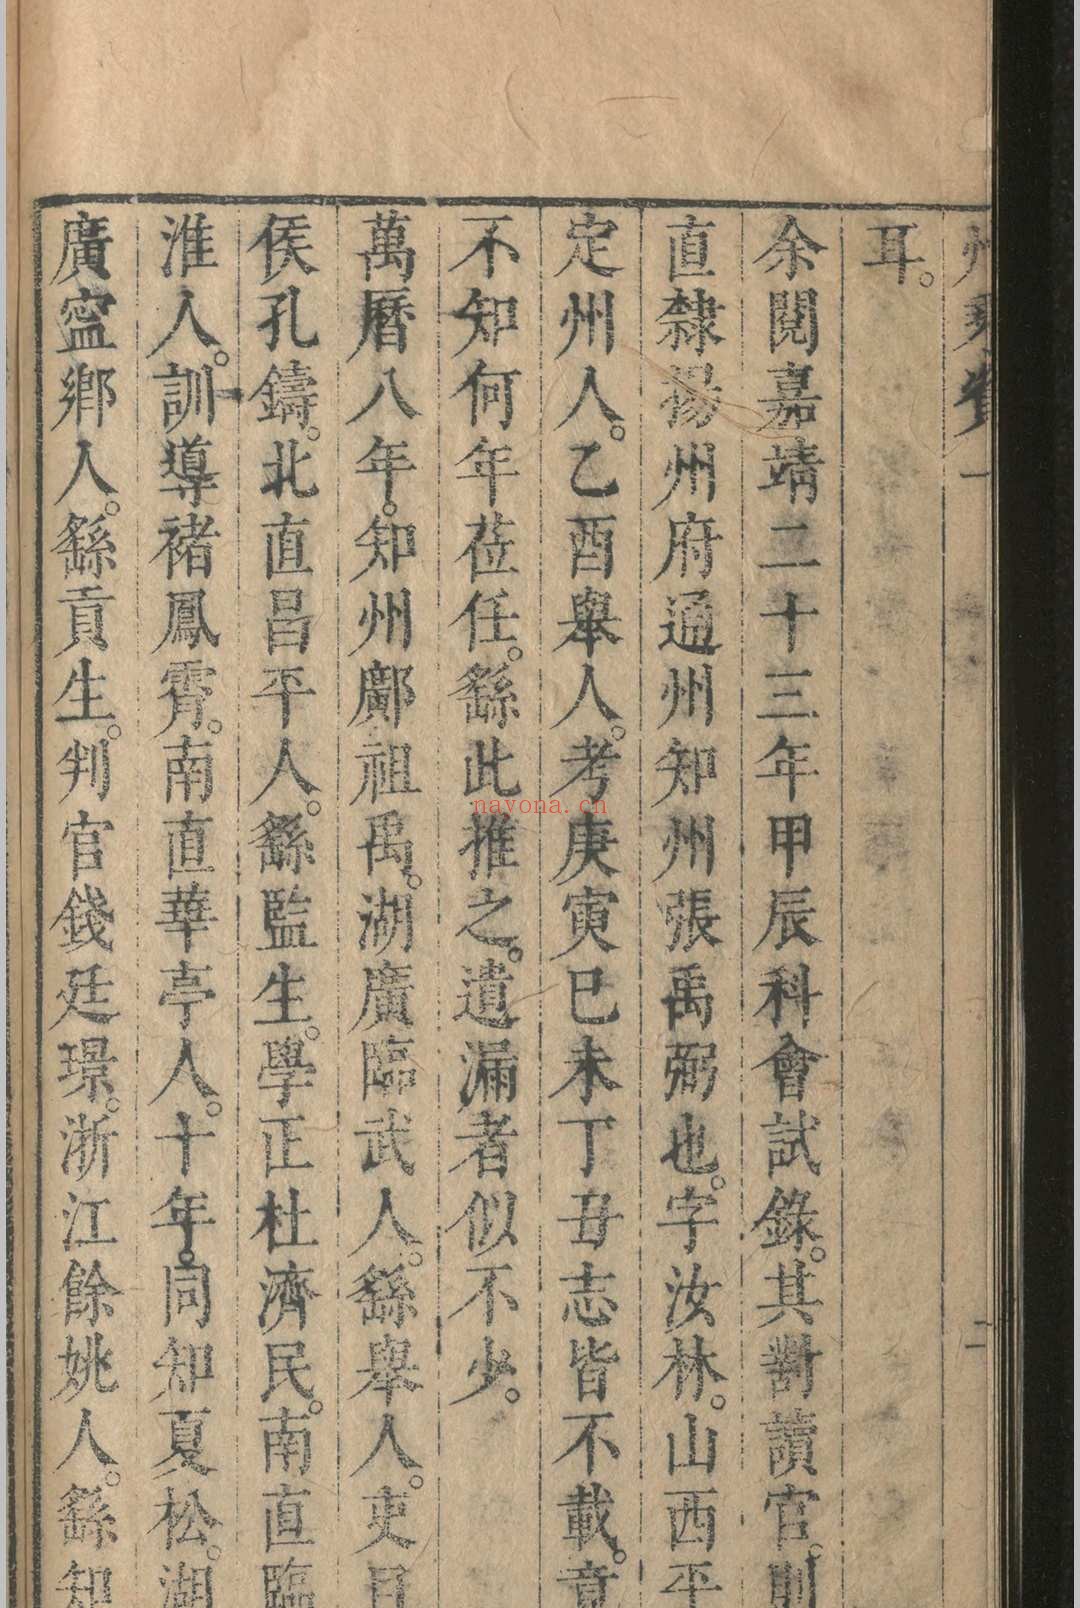 州乘卷一　二
耳。
余閱嘉靖二十三年甲辰科會試錄。其對讀官。則
直隸揚州府通州知州張禹弼也。字汝林。山西平
定州人。乙酉舉人。考庚寅己未丁丑志皆不載。竟
不知何年莅任。繇此推之。遺漏者似不少。
萬曆八年。知州鄺祖禹。湖廣臨武人。繇舉人。吏目
侯孔鑄。北直昌平人。繇監生。學正杜濟民。南直臨
淮人。訓導褚鳳霄。南直華亭人。十年。同知夏松。湖
廣寍鄉人。繇貢生。判官錢廷璟。浙江餘姚人。繇知
nayona.cn